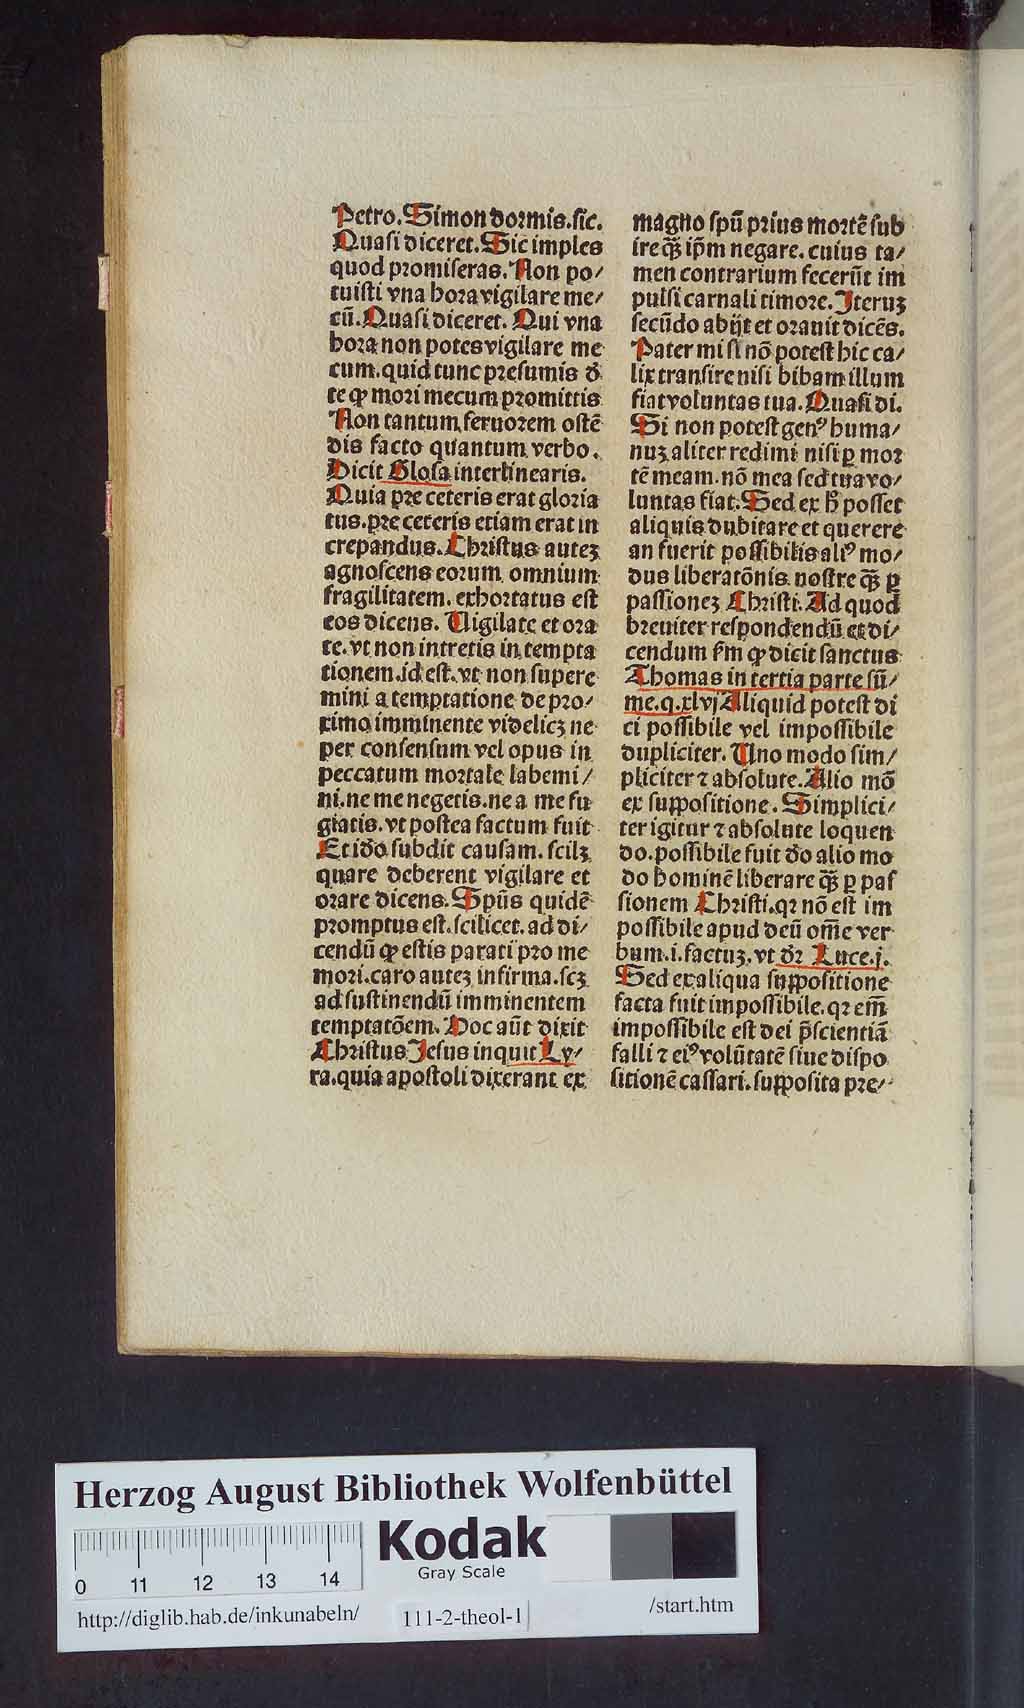 Petro. Simon dormis. sic.
Quasi diceret. Sic imples
quod promiseras. Non po/
tuisti vna hora vigilare me/
cū. Quasi diceret. Qui vna
hora non potes vigilare me
cum. quid tunc presumis ď
te ꝙ mori mecum promittis
Non tantum feruorem ostē
dis facto quantum verbo.
Dicit Glosa interlinearis.
Quia pre ceteris erat gloria
tus. pre ceteris etiam erat in
crepandus. Christus auteꝫ
agnoscens eorum omnium
fragilitatem. exhortatus est
eos dicens. Uigilate et ora
te. vt non intretis in tempta
tionem .id est. vt non supere
mini a temptatione de pro/
ximo imminente videlicꝫ ne
per consensum vel opus in
peccatum mortale labemi/
ni. ne me negetis. ne a me fu
giatis. vt postea factum fuit
Et iďo subdit causam. scilꝫ
quare deberent vigilare et
orare dicens. Spūs quidē
promptus est. scilicet. ad di/
cendū ꝙ estis parati pro me
mori. caro auteꝫ infirma. scꝫ
ad sustinendū imminentem
temptatōem. Hoc aūt dixit
Christus Jesus inquit Ly/
ra. quia apostoli dixerant ex
magno spū prius mortē sub
ire qꝫ̄ ip̄m negare. cuius ta/
men contrarium fecerūt im
pulsi carnali timore. Jteruꝫ
secūdo abijt et orauit dicēs.
Pater mi si nō potest hic ca/
lix transire nisi bibam illum
fiat voluntas tua. Quasi di.
Si non potest genꝰ huma/
nuꝫ aliter redimi nisi ꝑ mor
tē meam. nō mea sed tua vo/
luntas fiat. Sed ex h̄ posset
aliquis dubitare et querere
an fuerit possibilis aliꝰ mo/
dus liberatōnis nostre qꝫ̄ ꝑ
passioneꝫ Christi. Ad quod
breuiter respondendū et di/
cendum ẜm ꝙ dicit sanctus
Thomas in tertia parte sū/
me. q. xlvj Aliquid potest di
ci possibile vel impossibile
dupliciter. Uno modo sim/
pliciter ⁊ absolute. Alio mō
ex suppositione. Simplici/
ter igitur ⁊ absolute loquen
do. possibile fuit ďo alio mo
do hominē liberare qꝫ̄ ꝑ pas
sionem Christi. qꝛ nō est im
possibile apud deū om̄e ver
bum .i. factuꝫ. vt dꝛ̄ Luce. j.
Sed ex aliqua suppositione
facta fuit impossibile. qꝛ em̄
impossibile est dei p̄scientiā
falli ⁊ eiꝰ volūtatē siue dispo
sitionē cassari. supposita pre/
Herzog August Bibliothek Wolfenbüttel
Kodak
Gray Scale
0 11 12 13 14
http://diglib.hab.de/inkunabeln/ 111-2-theol-1 /start.htm